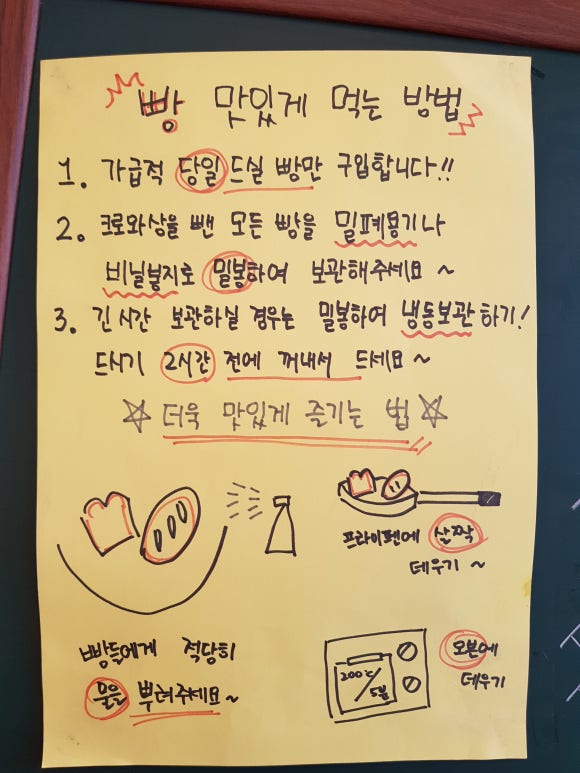 빵 맛있게 먹는 방법
1. 가급적 당일 드실 빵만 구입합니다!!
2. 크로와상을 뺀 모든 빵을 밀폐용기나
비닐봉지로 밀봉하여 보관해주세요 ~
3. 긴 시간 보관하실 경우는 밀봉하여 냉동보관 하기!
드시기 2시간 전에 꺼내서 드세요 ~
☆ 더욱 맛있게 즐기는 법 ☆
프라이펜에 살짝
데우기 ~
빵들에게 적당히
물을 뿌려주세요 ~
200℃/5분
오븐에
데우기